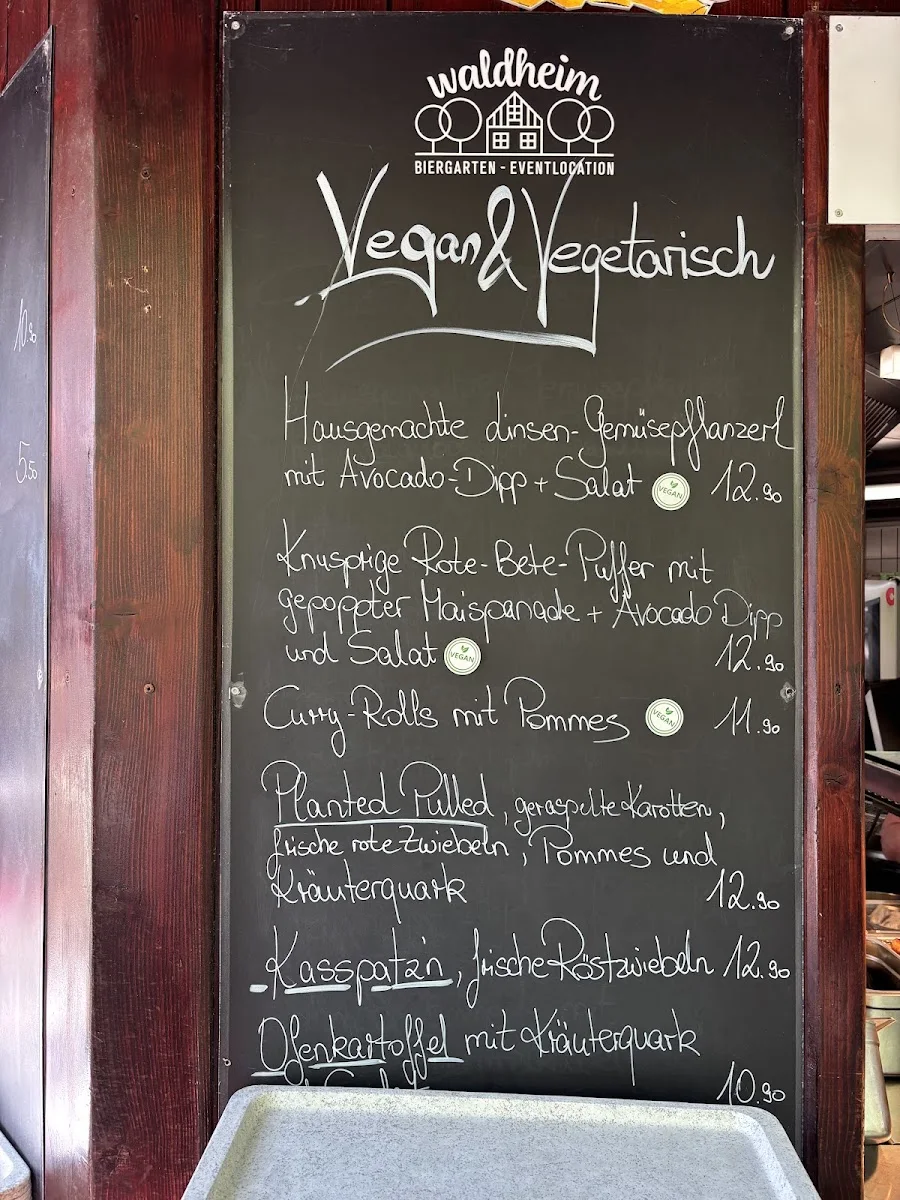 waldheim
BIERGARTEN - EVENTLOCATION
Vegan & Vegetarisch
10.90
5.50
Hausgemachte Linsen-Gemüsepflanzerl
mit Avocado-Dipp + Salat VEGAN 12.90
Knusprige Rote-Bete-Puffer mit
gepoppter Maispanade + Avocado Dipp
und Salat VEGAN 12.90
Curry-Rolls mit Pommes VEGAN 11.90
Planted Pulled, geraspelte Karotten,
frische rote Zwiebeln, Pommes und
Kräuterquark 12.90
Kasspatz'n, frische Röstzwiebeln 12.90
Ofenkartoffel mit Kräuterquark
10.90